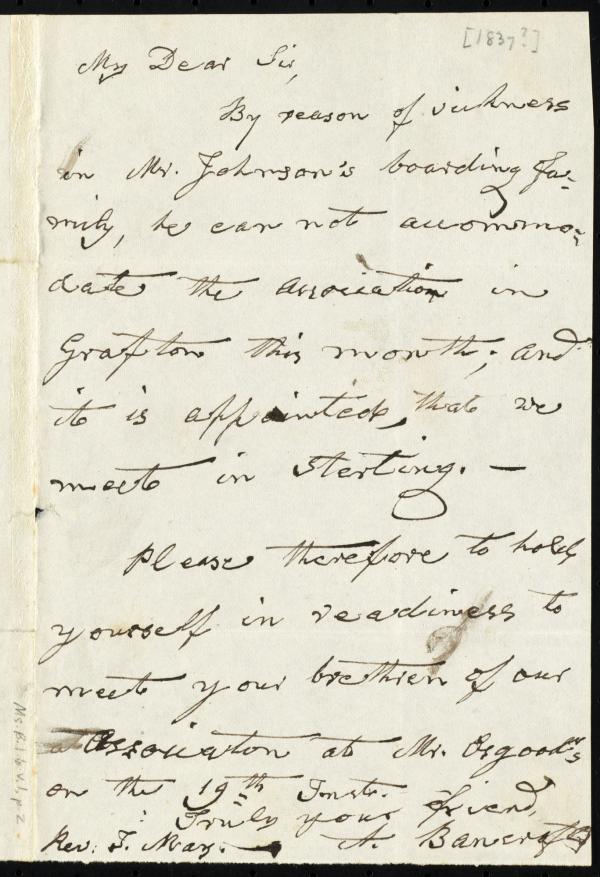 [1837?]
My Dear Sir,
By reason of sickness
in Mr. Johnson's boarding fa-
mily, he can not accommo-
date the Association in
Grafton this month; and
it is appointed, that we
meet in Sterling. —
Please therefore to hold
yourself in readiness to
meet your brethren of our
Association at Mr. Osgood's
on the 19th Inst.
Truly your friend,
Rev. J. May. — A. Bancroft
Ms. B.1.6 v.1, p.2